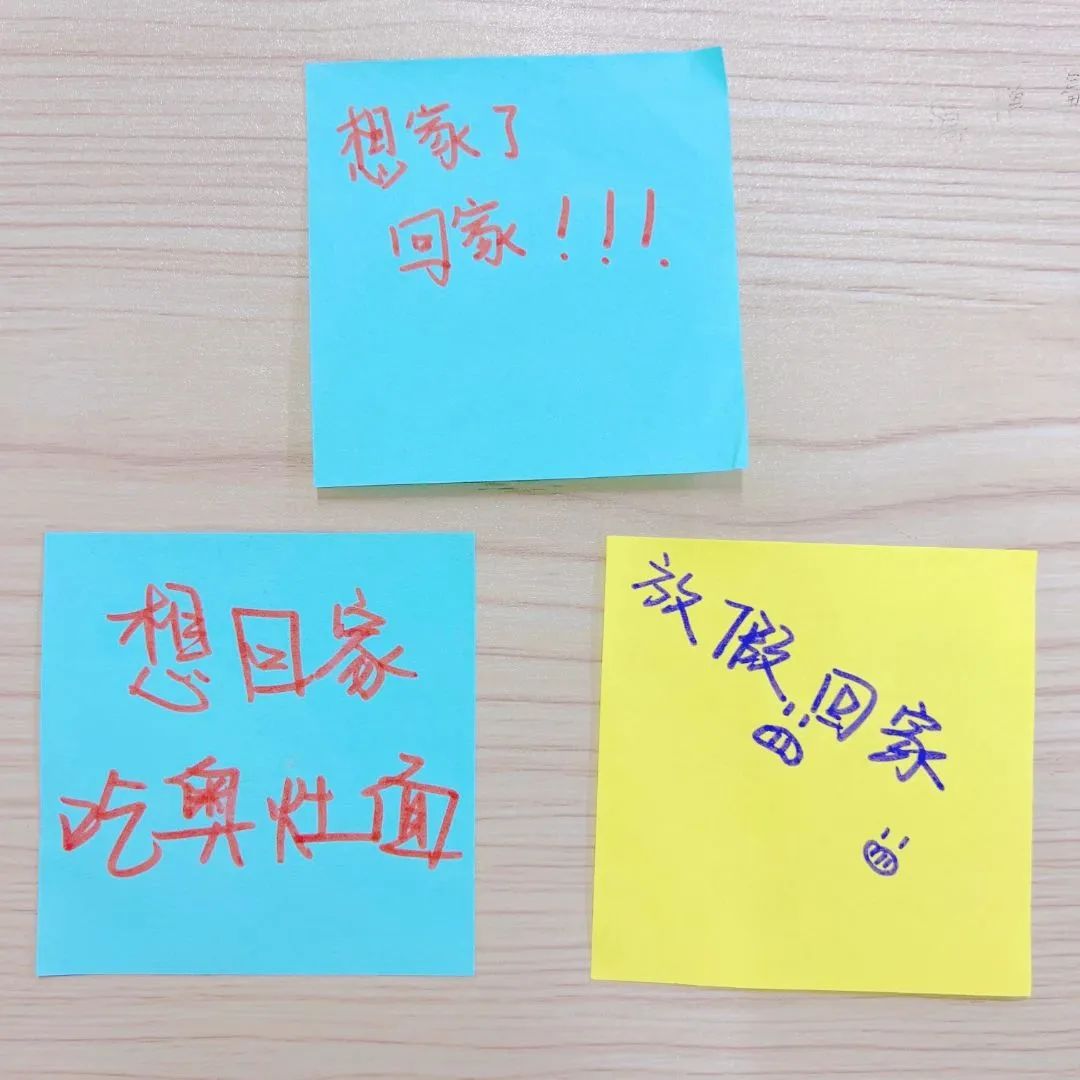 想家了
回家!!!
想回家
吃奥灶面
放假回家